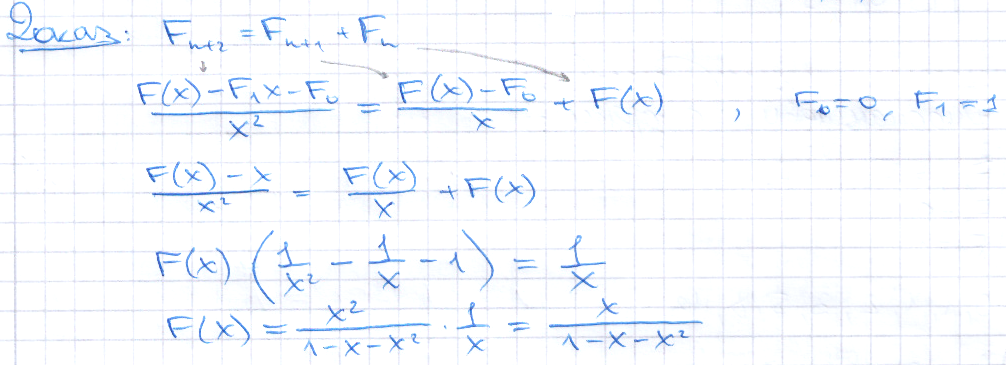 Доказ: F_{n+2} = F_{n+1} + F_n
\frac{F(x) - F_1x - F_0}{x^2} = \frac{F(x) - F_0}{x} + F(x) , F_0 = 0, F_1 = 1
\frac{F(x) - x}{x^2} = \frac{F(x)}{x} + F(x)
F(x) \left( \frac{1}{x^2} - \frac{1}{x} - 1 \right) = \frac{1}{x}
F(x) = \frac{x^2}{1 - x - x^2} \cdot \frac{1}{x} = \frac{x}{1 - x - x^2}